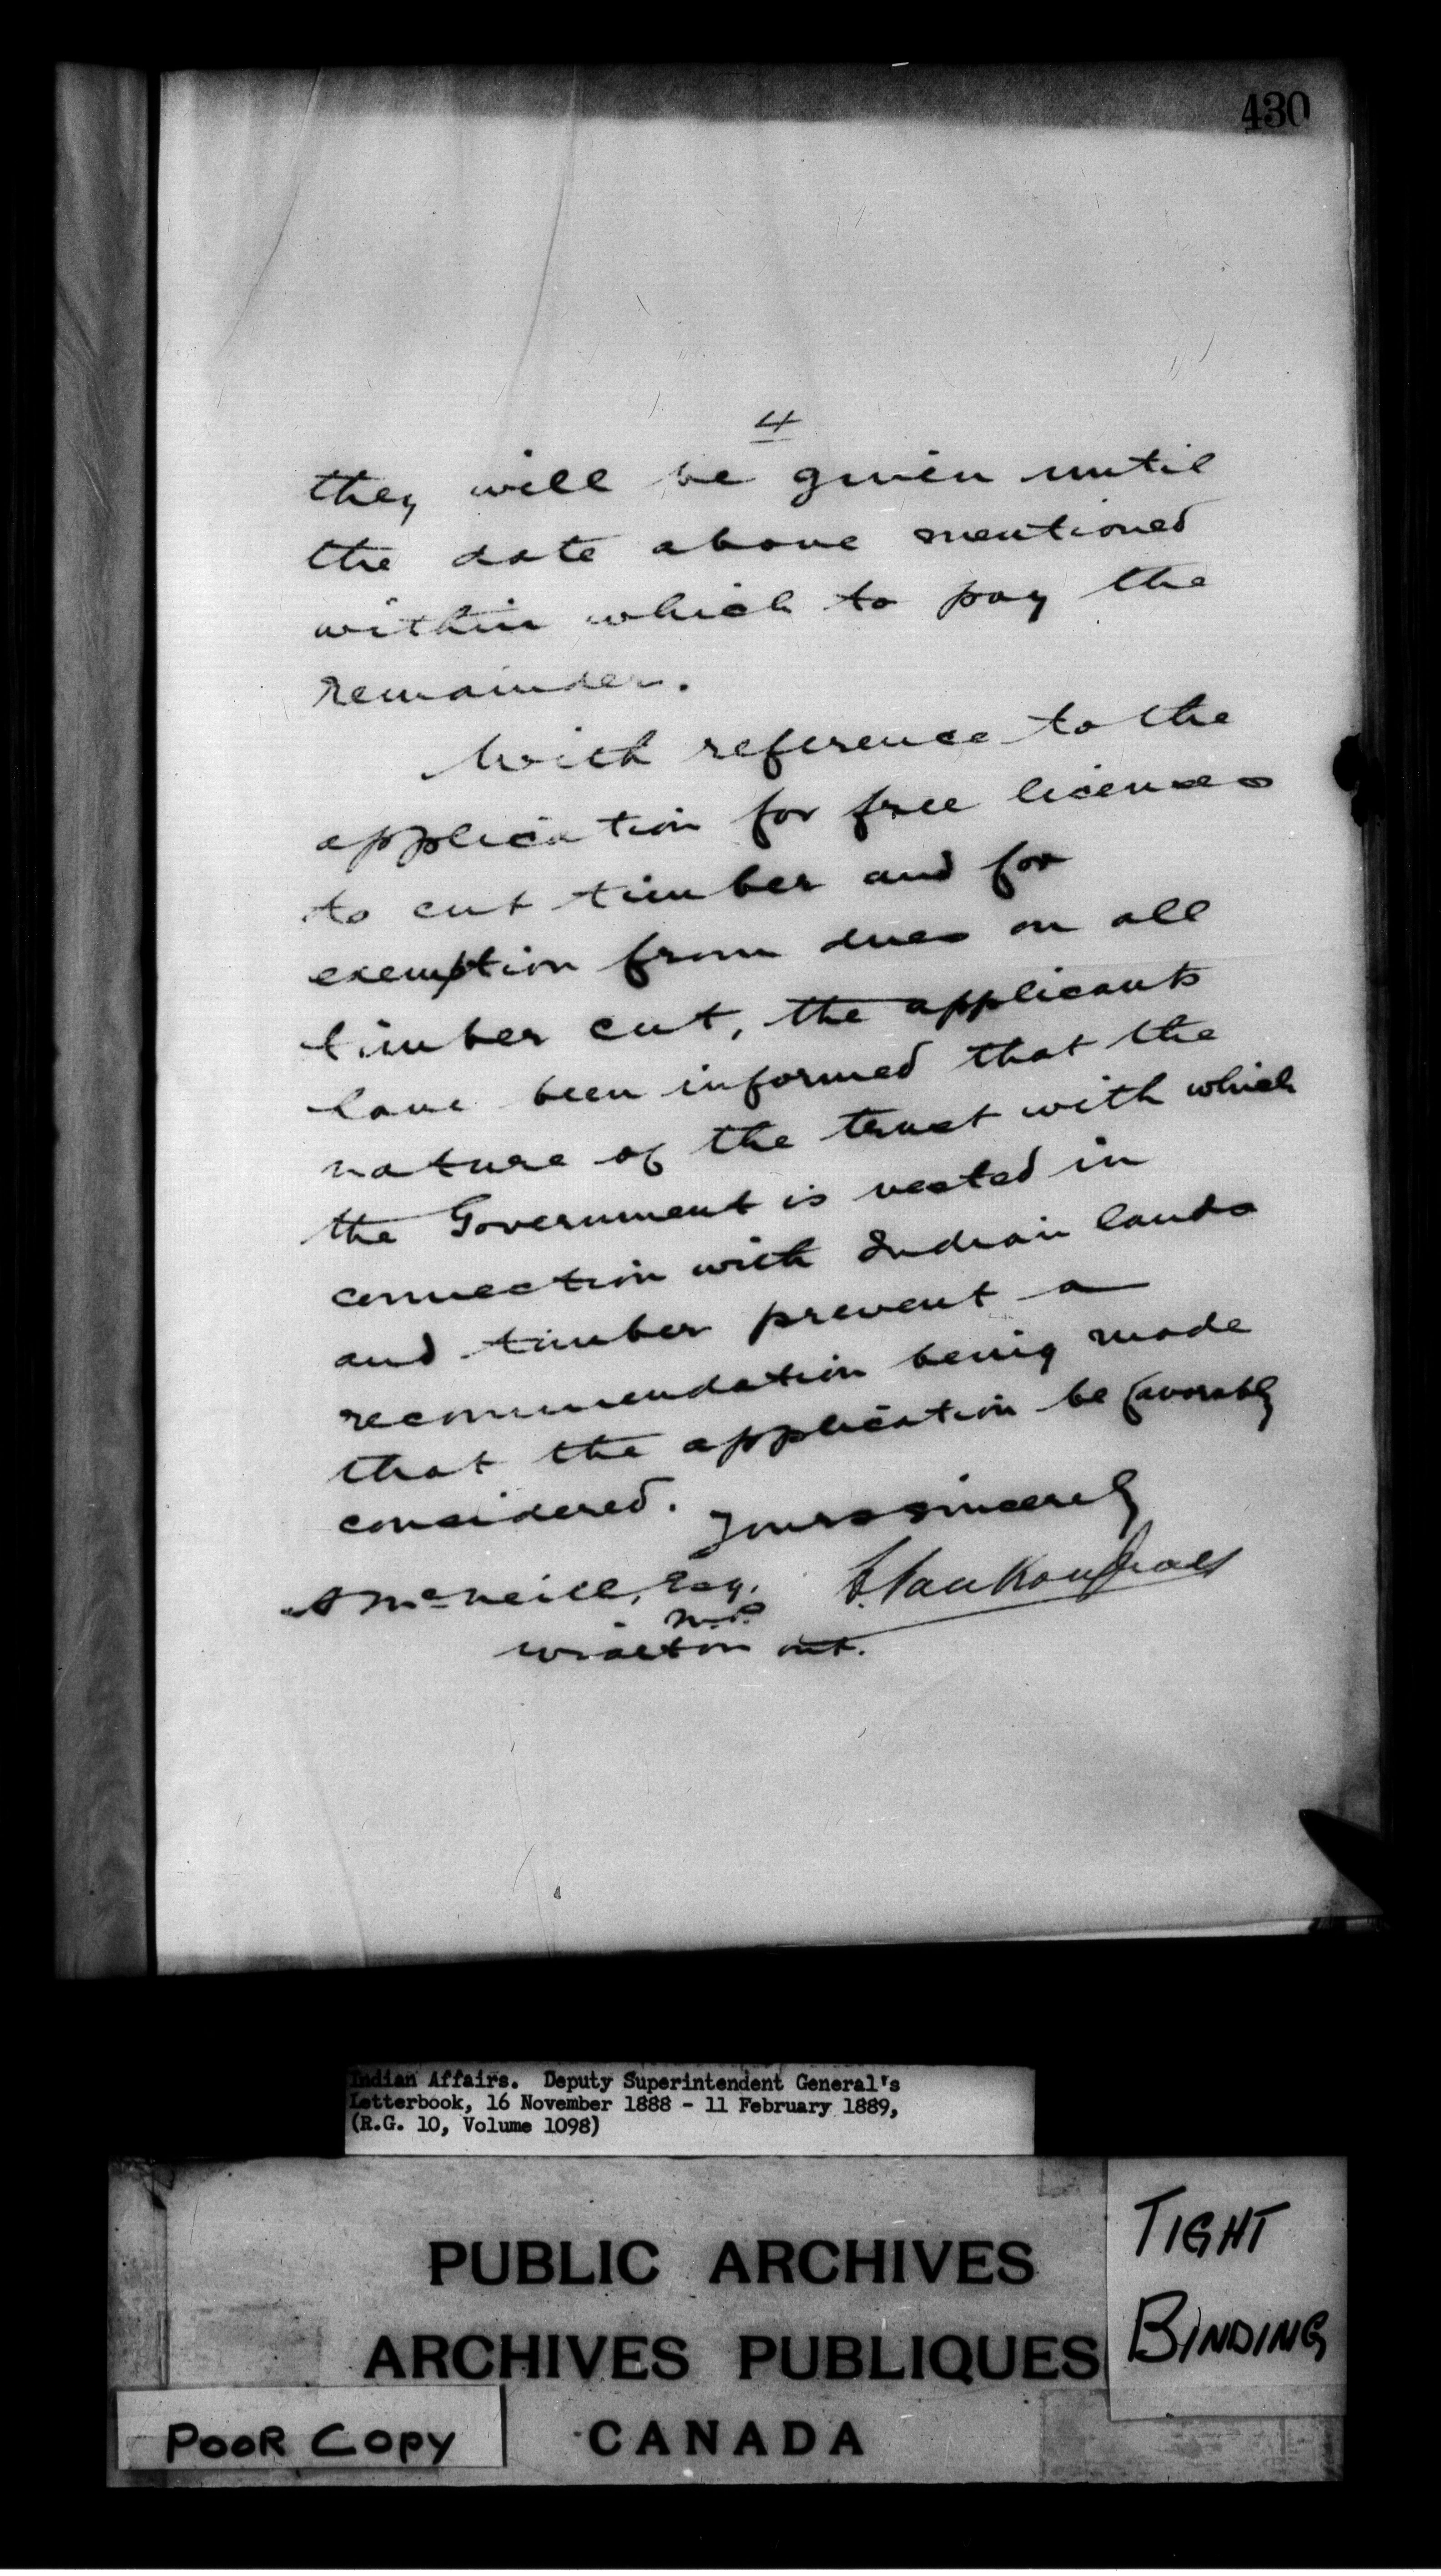 430
4
they will be given until
the date above mentioned
within which to pay the
remainder.
With reference to the
application for free licenses
to cut timber and for
exemption from dues on all
timber cut, the applicants
have been informed that the
nature of the trust with which
the Government is vested in
connection with Indian lands
and timber prevent a
recommendation being made
that the application be favorably
considered.
Yours sincerely
L. VanKoughnet
A McNeill, Esq.
M.P.
Wiarton Ont.
Indian Affairs. Deputy Superintendent General's
Letterbook, 16 November 1888 - 11 February 1889,
(R.G. 10, Volume 1098)
PUBLIC ARCHIVES
ARCHIVES PUBLIQUES
CANADA
TIGHT
BINDING
POOR COPY